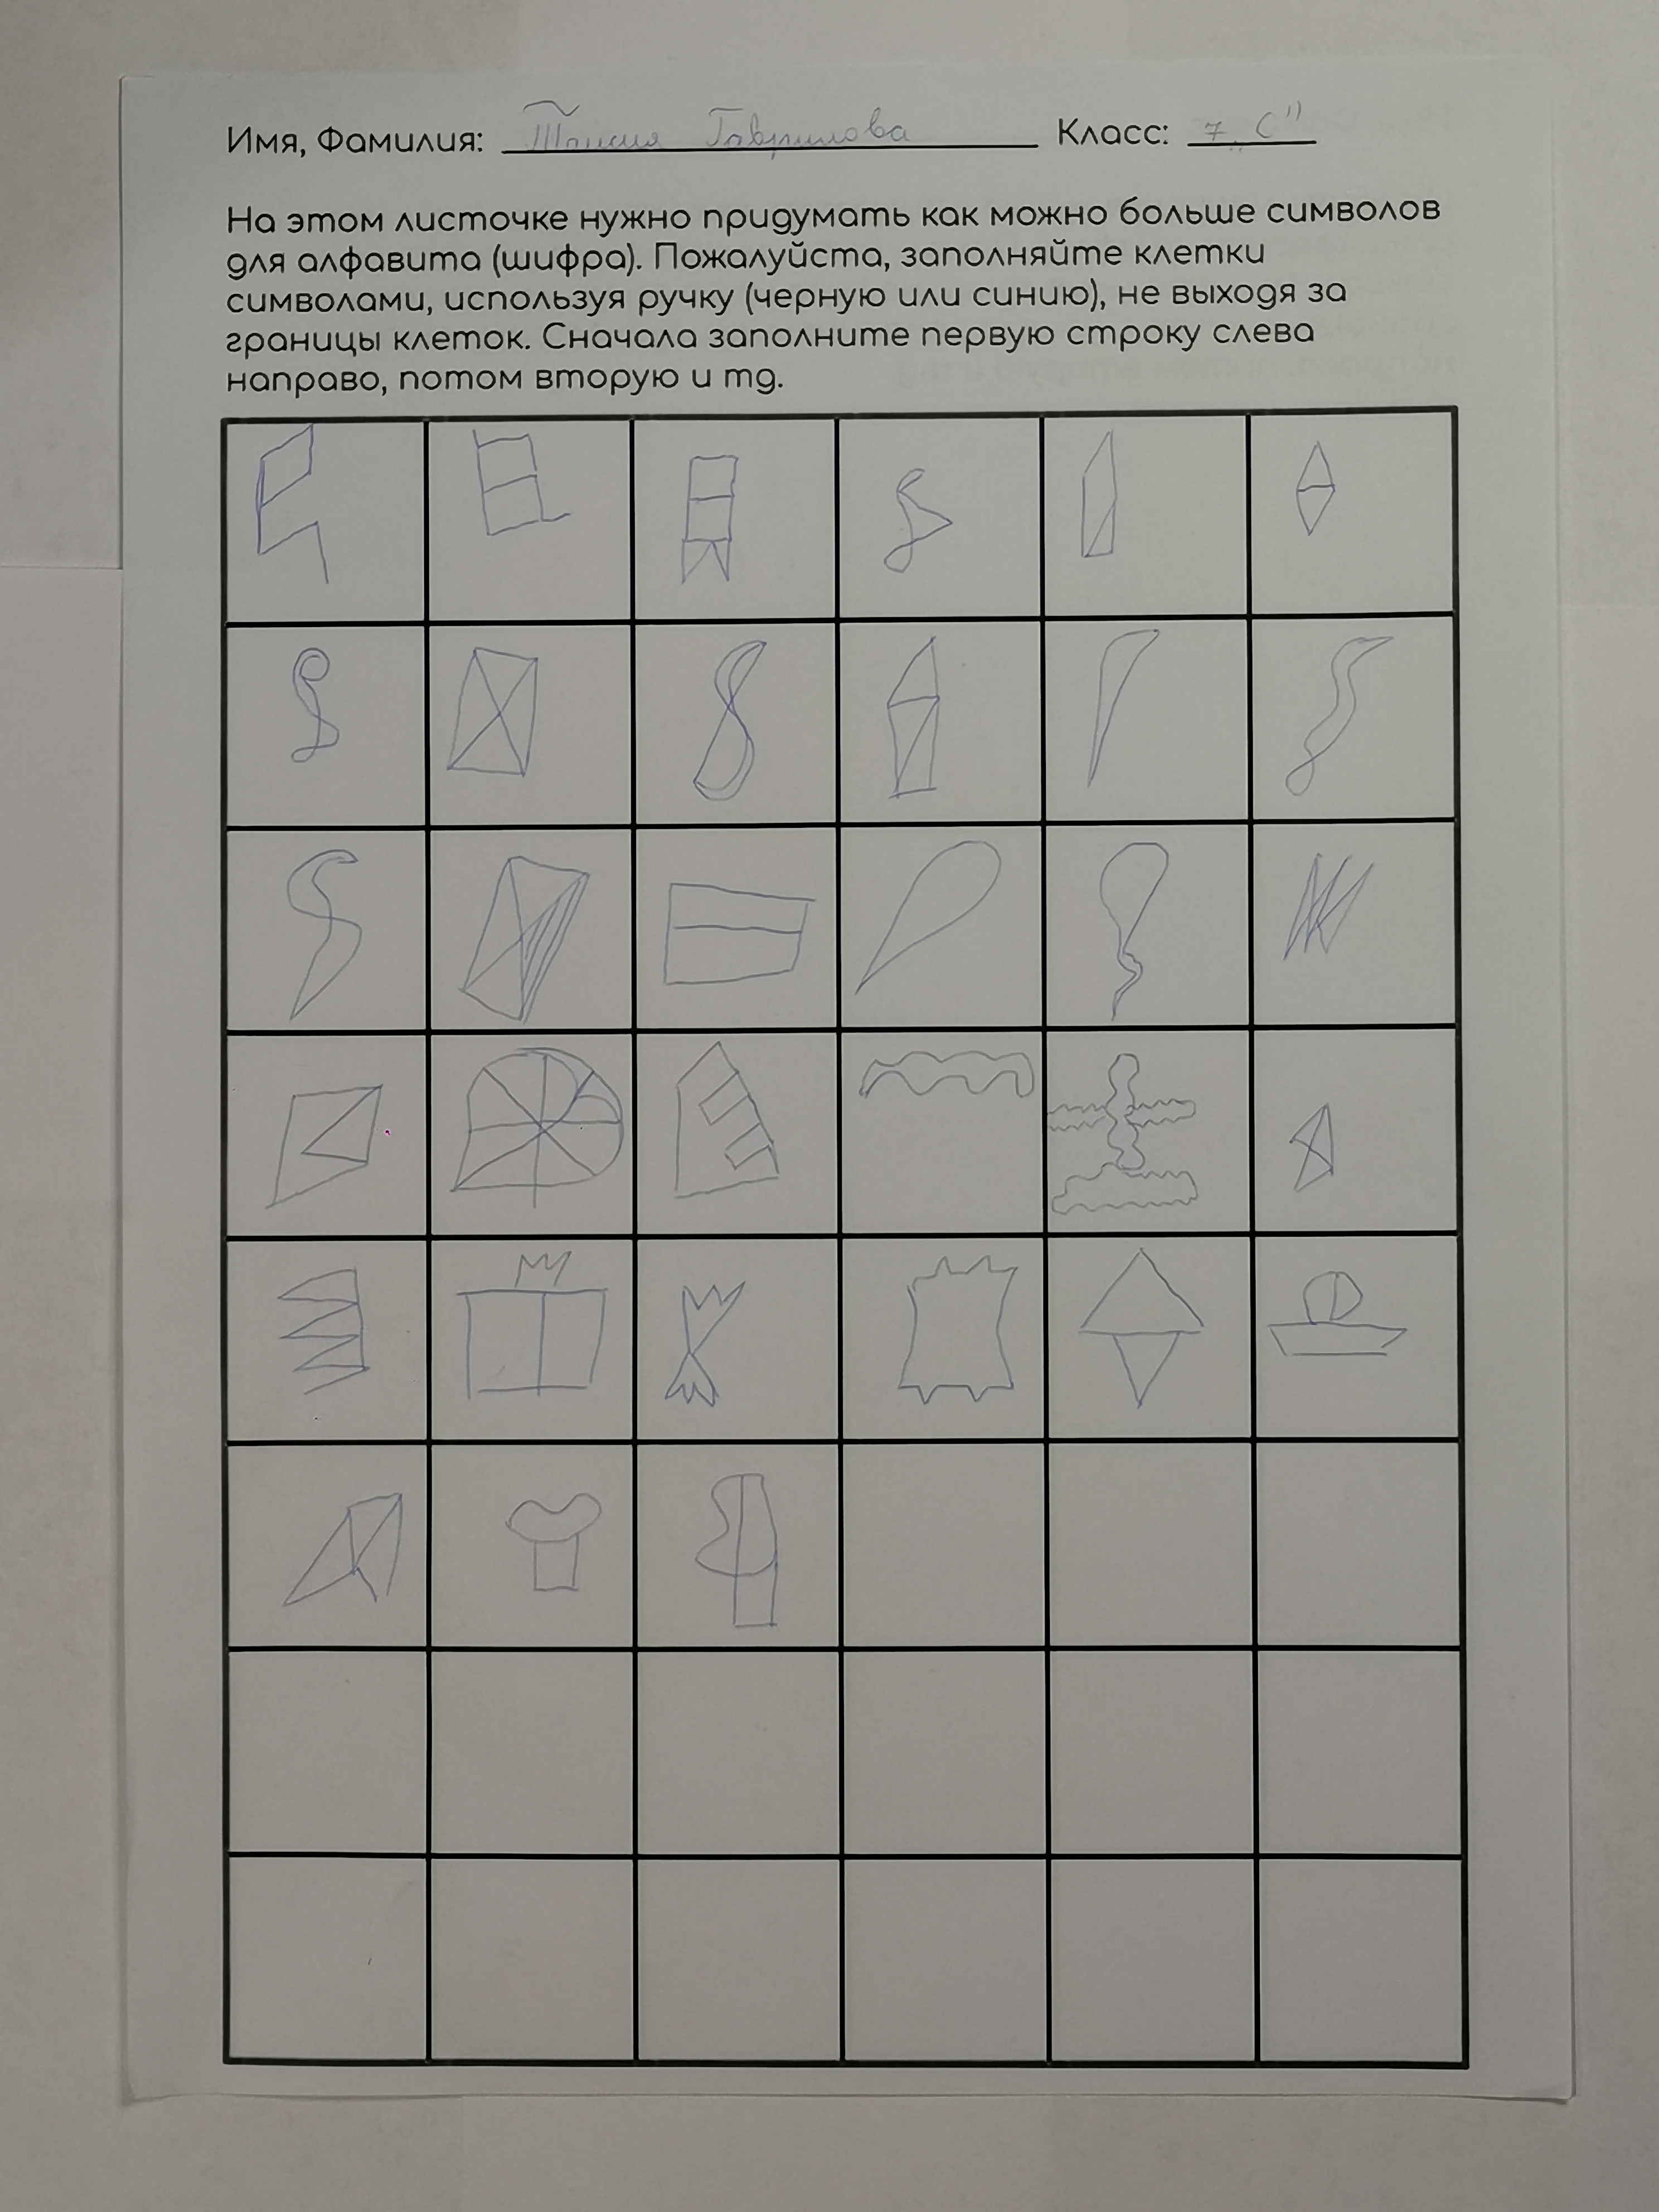 Имя, Фамилия: Таисия Гаврилова Класс: 7 „С"
На этом листочке нужно придумать как можно больше символов
для алфавита (шифра). Пожалуйста, заполняйте клетки
символами, используя ручку (черную или синию), не выходя за
границы клеток. Сначала заполните первую строку слева
направо, потом вторую и тд.